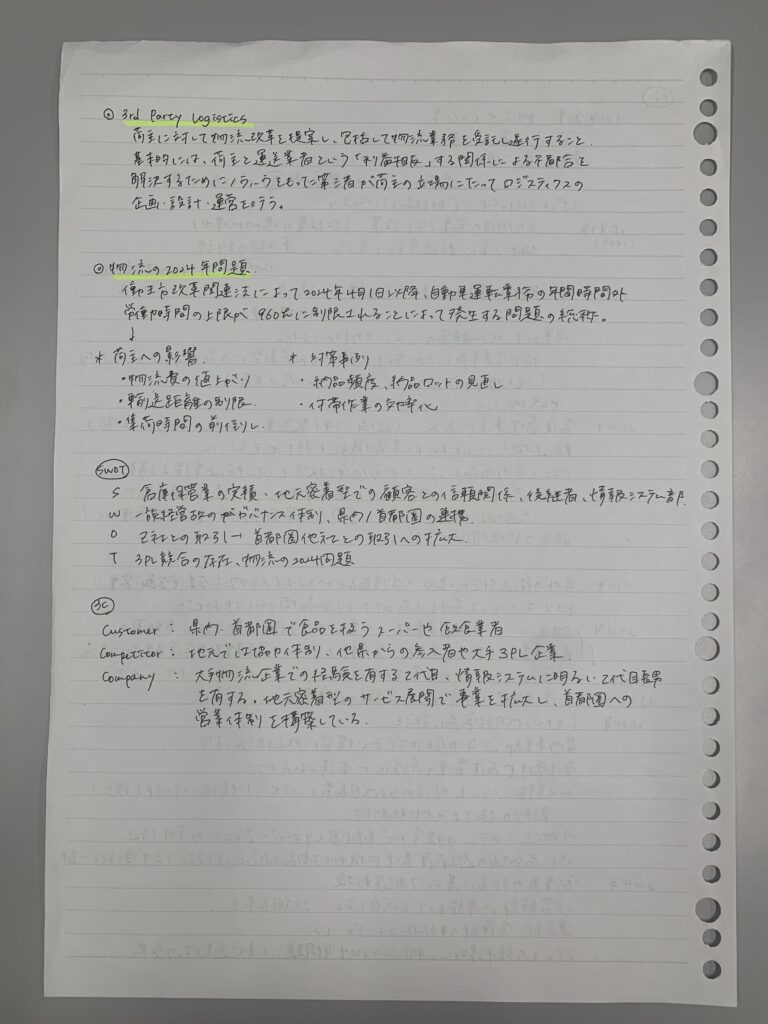 ◎ 3rd Party Logistics
荷主に対して物流改革を提案し、包括して物流業務を受託し遂行すること。
基本的には、荷主と運送業者という「利益相反」する関係による不都合を
解決するためにノウハウをもった第三者が荷主の立場にたってロジスティクスの
企画・設計・運営を行う。
◎ 物流の2024年問題.
働き方改革関連法によって2024年4月1日以降、自動車運転業務の年間時間外
労働時間の上限が960hに制限されることによって発生する問題の総称。
↓
* 荷主への影響. * 対策事例
・物流費の値上がり ・納品頻度、納品ロットの見直し
・輸送距離の制限. ・付帯作業の効率化
・集荷時間の前倒し.
SWOT
S 倉庫保管業の実績・地元密着型での顧客との信頼関係、後継者、情報システム部.
W 一族経営故のガバナンス体制、県内/首都圏の連携.
O Z社との取引→首都圏他社との取引への拡大.
T 3PL競合の存在、物流の2024問題
3C
Customer : 県内・首都圏で食品を扱うスーパーや飲食業者
Competitor : 地元では協力体制、他県からの参入者や大手3PL企業.
Company : 大手物流企業での経験を有する2代目、情報システムに明るい2代目長男
を有する。地元密着型のサービス展開で事業を拡大し、首都圏への
営業体制を構築している.